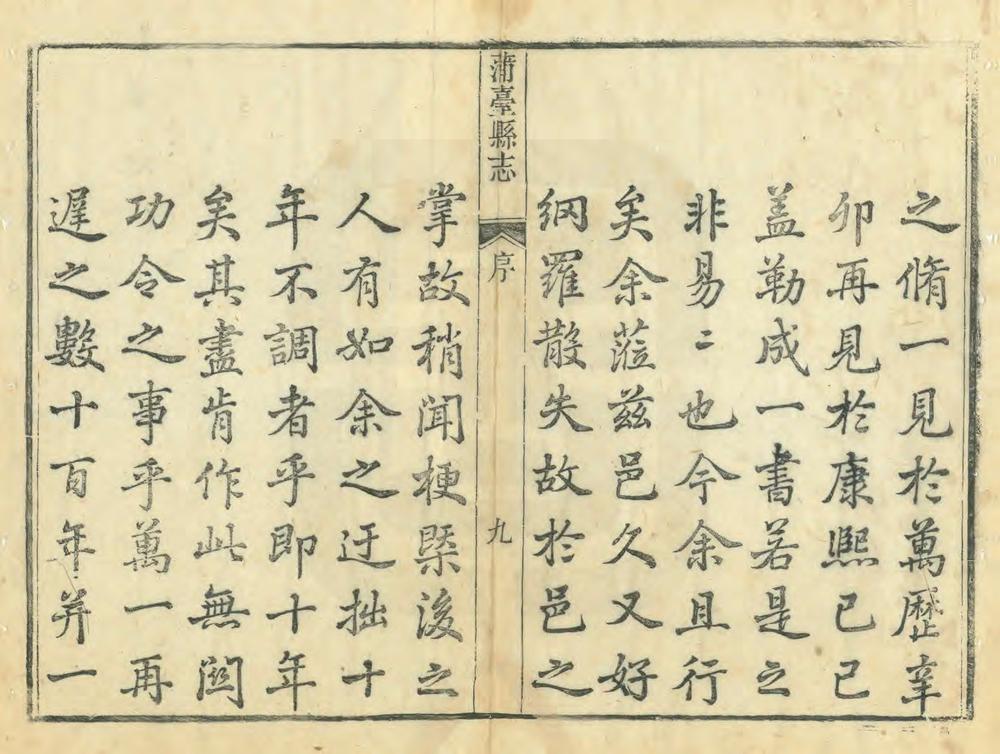 之脩一見於萬歷辛
卯再見於康熙己巳
盖勒成一書若是之
非易二也今余且行
矣余蒞兹邑久又好
網羅散失故於邑之
蒲臺縣志
序
九
掌故稍聞梗槩後之
人有如余之迂拙十
年不調者乎即十年
矣其盡肯作此無關
功令之事乎萬一再
遲之數十百年并一